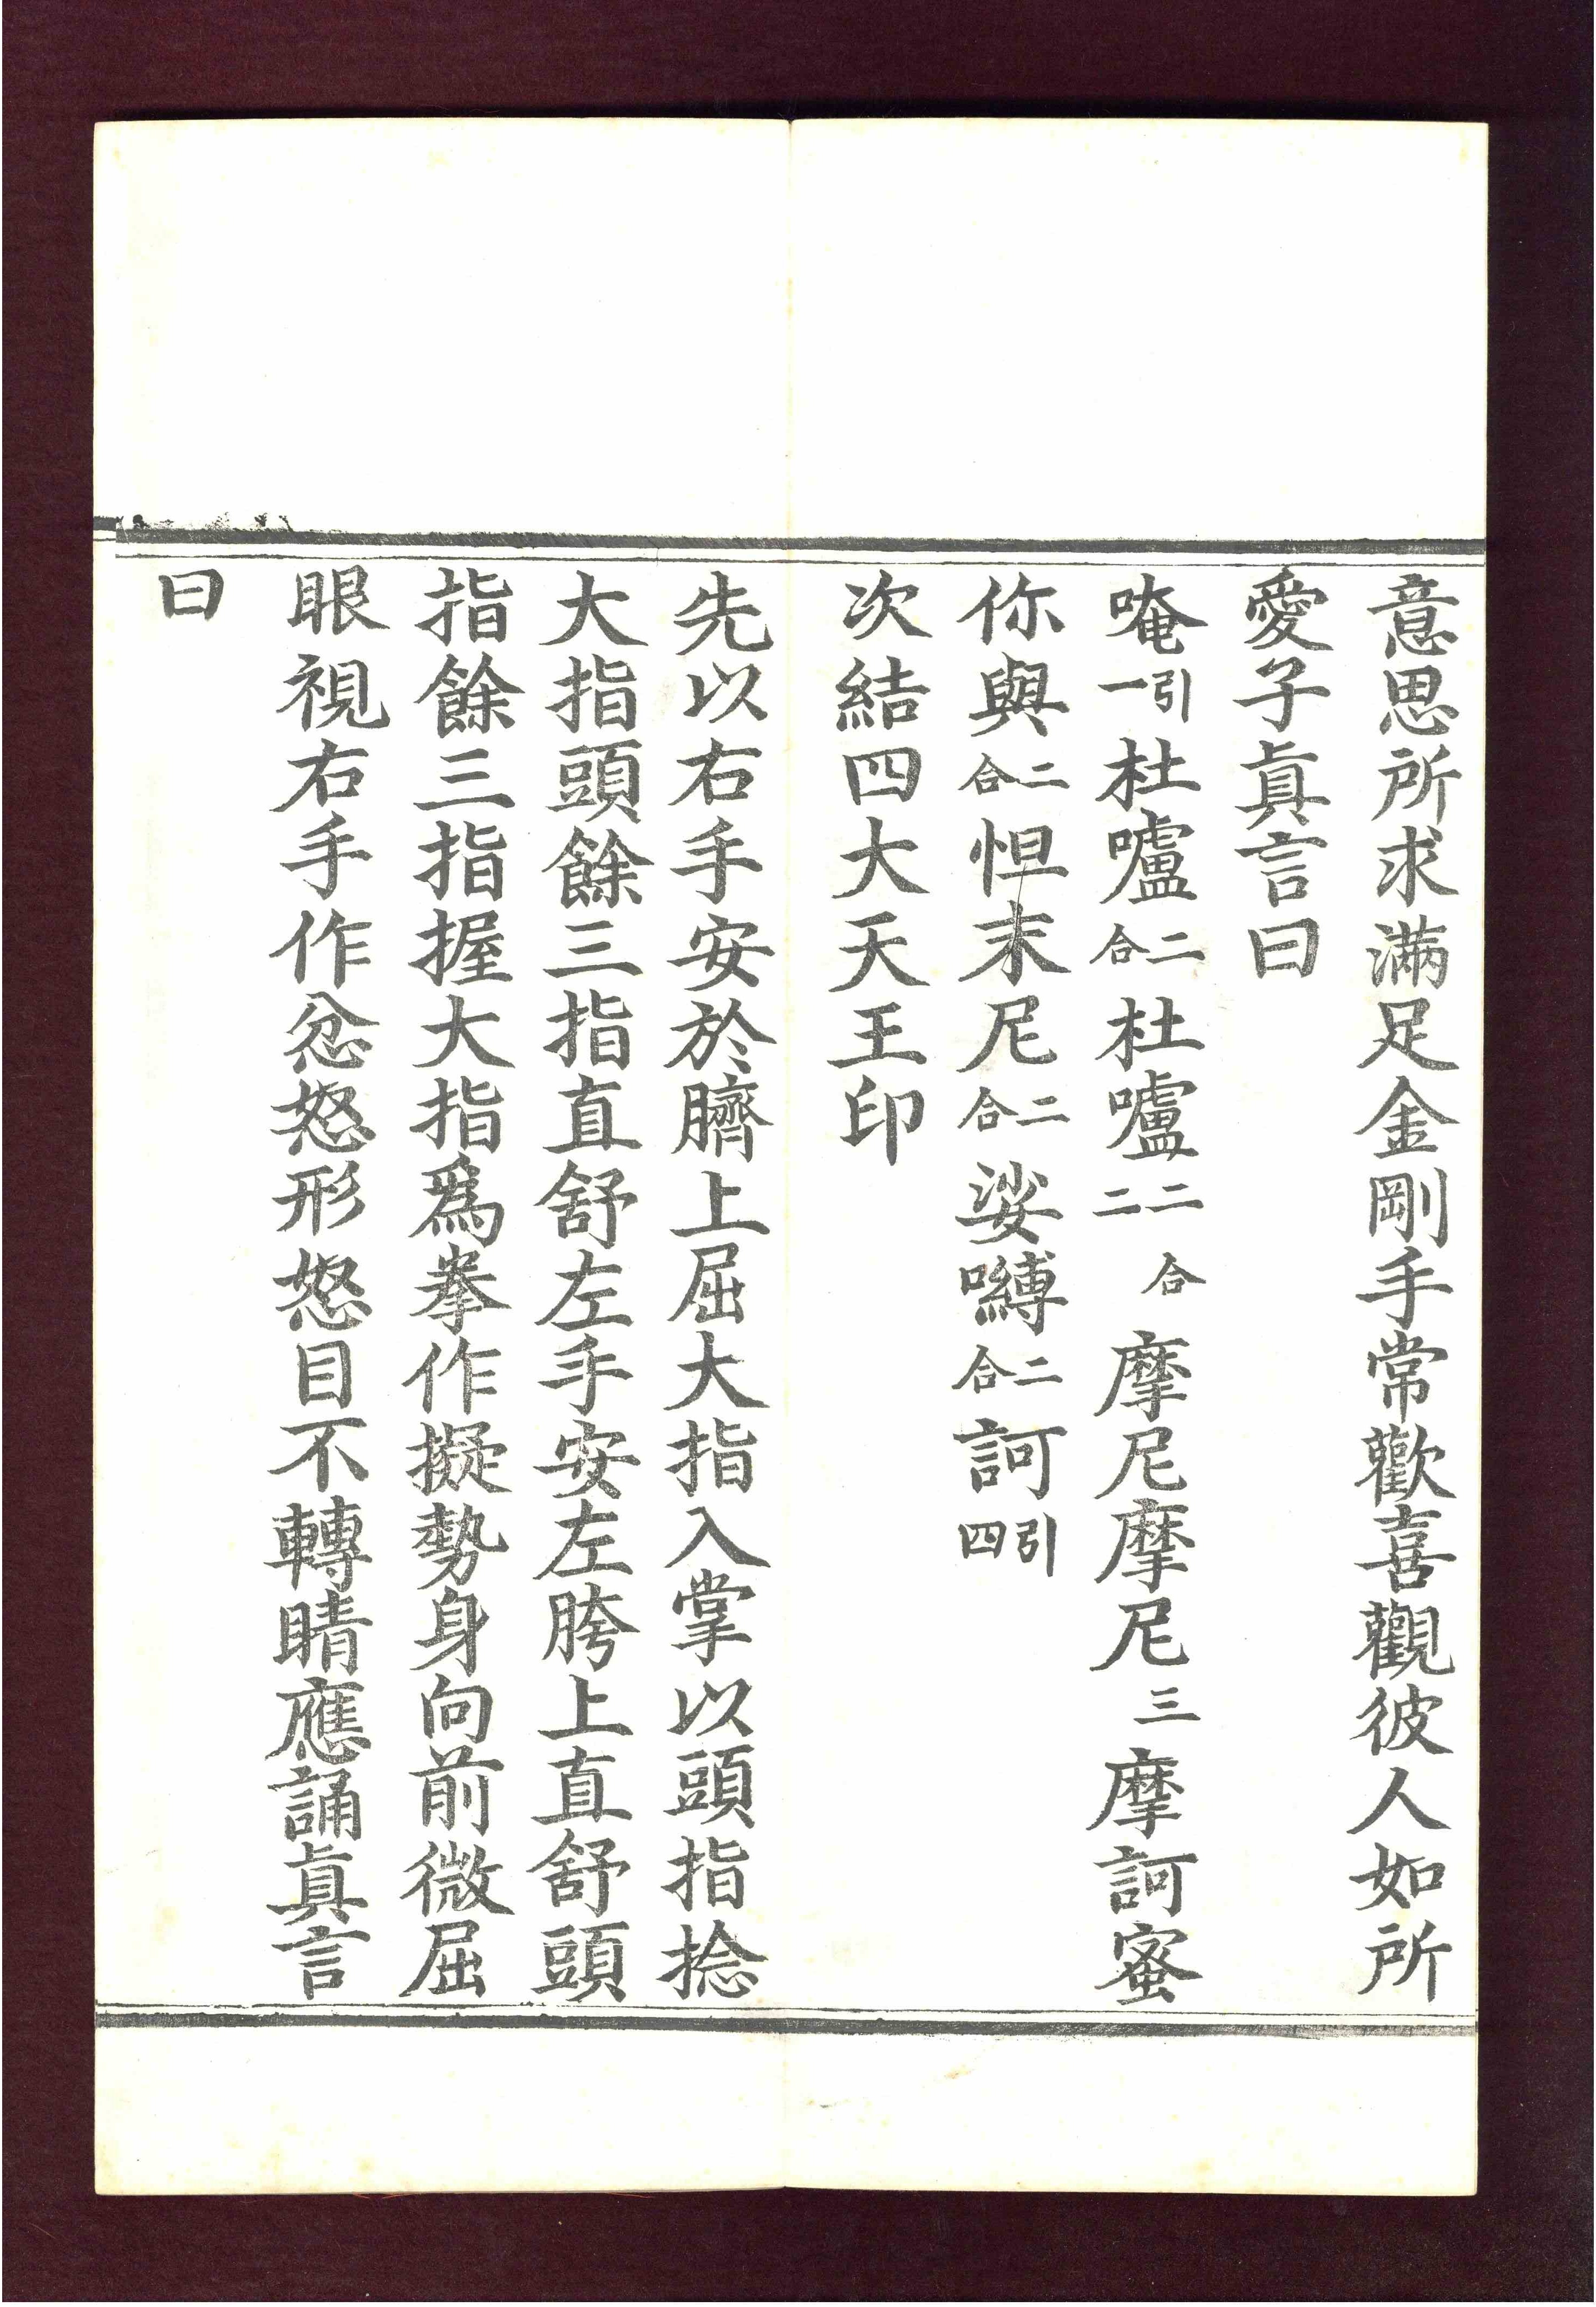 意思所求滿足金剛手常歡喜觀彼人如所
愛子眞言曰
唵引一杜嚧二合杜嚧二合二摩尼摩尼三摩訶蜜
你與二合怛末尼二合娑嚩二合訶引四
次結四大天王印
先以右手安於臍上屈大指入掌以頭指捻
大指頭餘三指直舒左手安左胯上直舒頭
指餘三指握大指爲拳作擬勢身向前微屈
眼視右手作忿怒形怒目不轉睛應誦眞言
曰